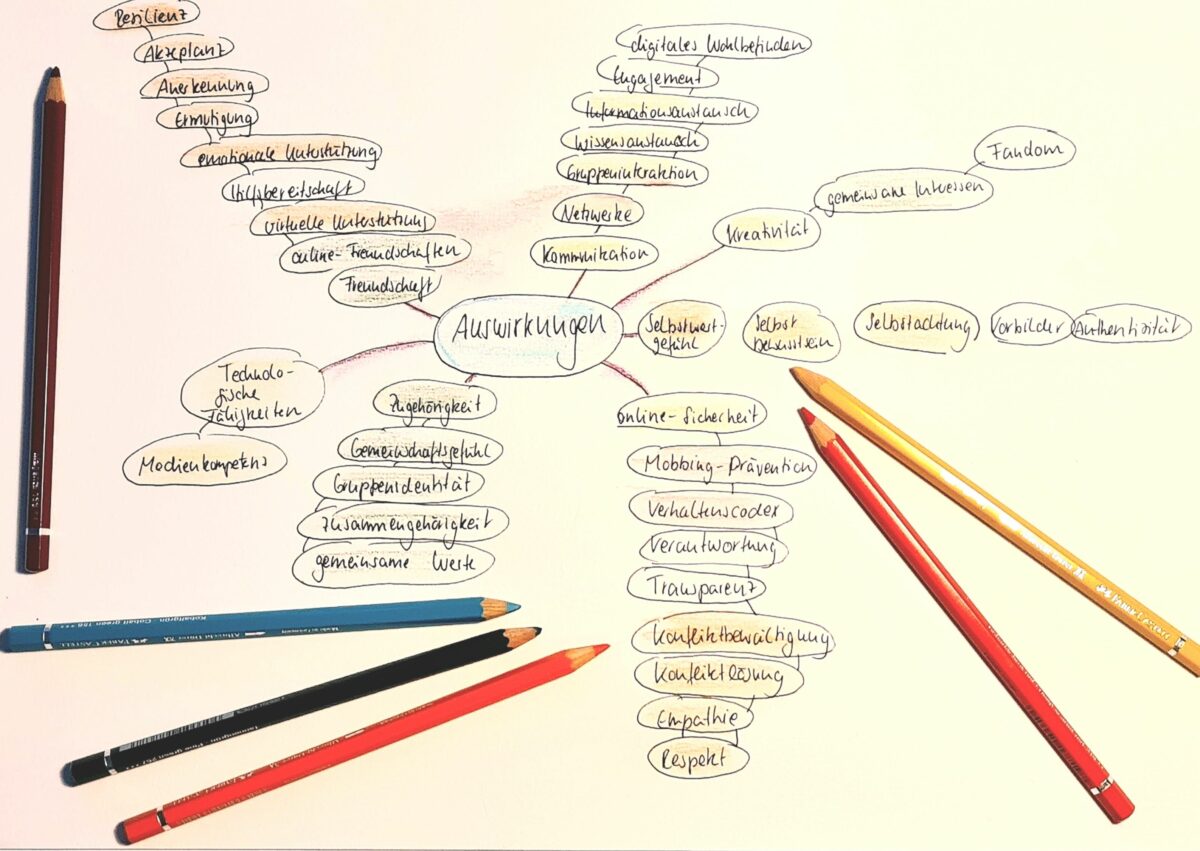 Resilienz
Akzeptanz
Anerkennung
Ermutigung
emotionale Unterstützung
Hilfsbereitschaft
virtuelle Unterstützung
online-Freundschaften
Freundschaft
digitales Wohlbefinden
Engagement
Informationsaustausch
Wissensaustausch
Gruppeninteraktion
Netzwerke
Kommunikation
Fandom
gemeinsame Interessen
Kreativität
Auswirkungen
Selbstwert-
gefühl
Selbst
bewusstsein
Selbstachtung
Vorbilder
Authentizität
Technolo-
gische
Fähigkeiten
Medienkompetenz
Zugehörigkeit
Gemeinschaftsgefühl
Gruppenidentität
Zusammengehörigkeit
gemeinsame Werte
online-Sicherheit
Mobbing-Prävention
Verhaltenscodex
Verantwortung
Transparenz
Konfliktbewältigung
Konfliktlösung
Empathie
Respekt
FABER-CASTELL
FABER-CASTELL